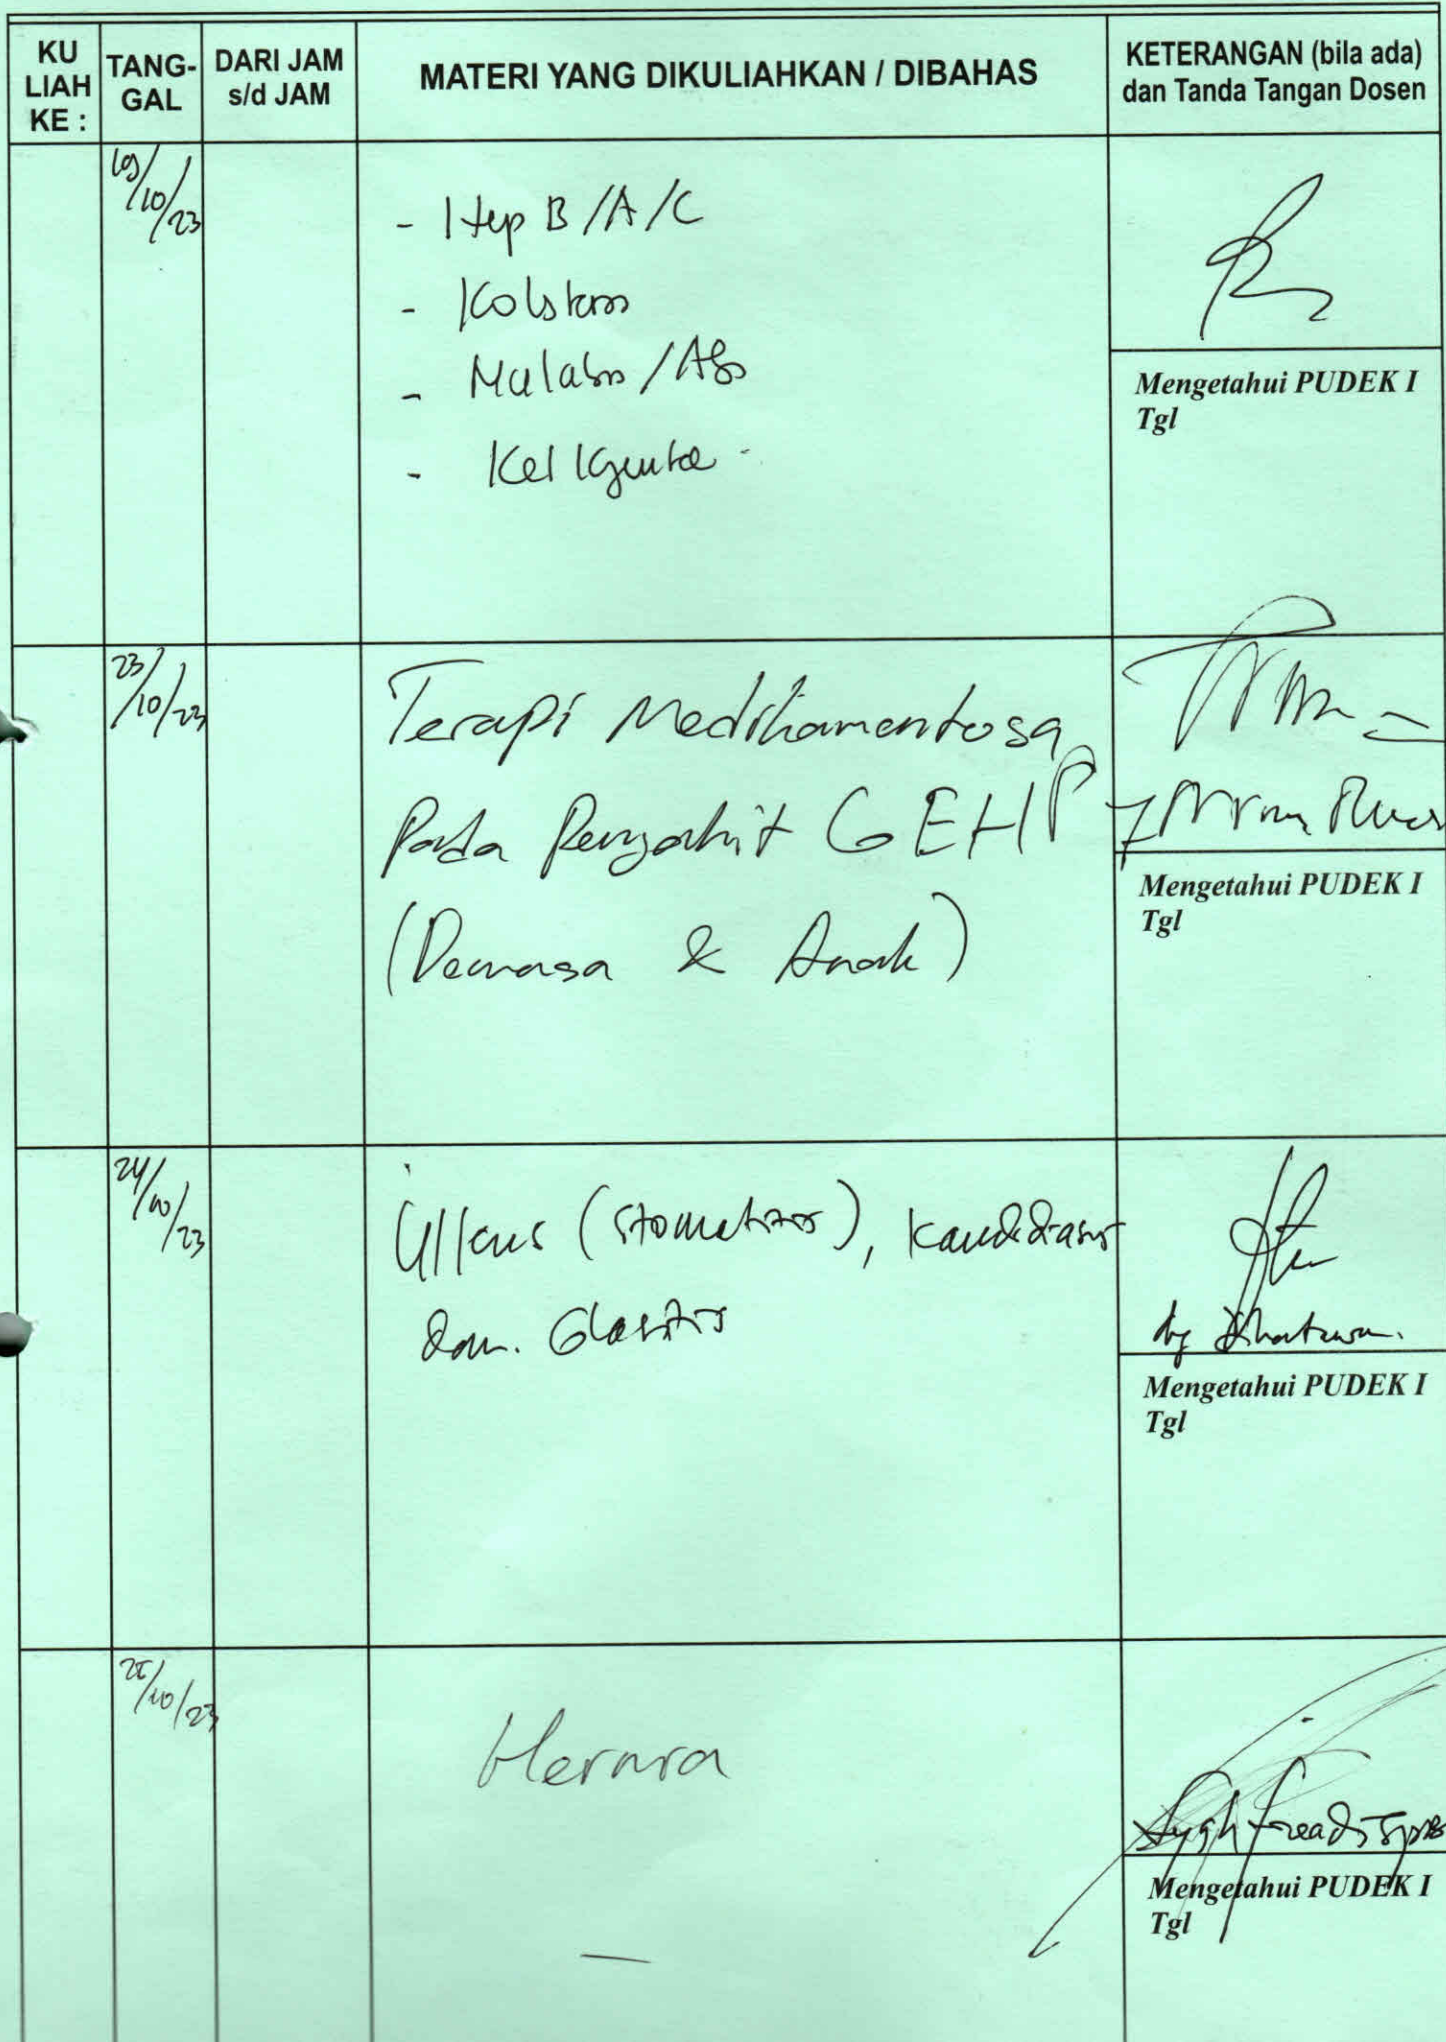 KU LIAH KE :
TANG-GAL
DARI JAM s/d JAM
MATERI YANG DIKULIAHKAN / DIBAHAS
KETERANGAN (bila ada) dan Tanda Tangan Dosen
/10/23
- Hep B/A/C
-
- /
- Kel
Mengetahui PUDEK I
Tgl
23/10/23
Terapi Medikamentosa
Pada Penyakit GEHP
(Dewasa & Anak)
Mengetahui PUDEK I
Tgl
24/10/23
Ulkus (Stomatitis), Kandidiasis
dan. Glositis
Mengetahui PUDEK I
Tgl
25/10/23
Hernia
Mengetahui PUDEK I
Tgl